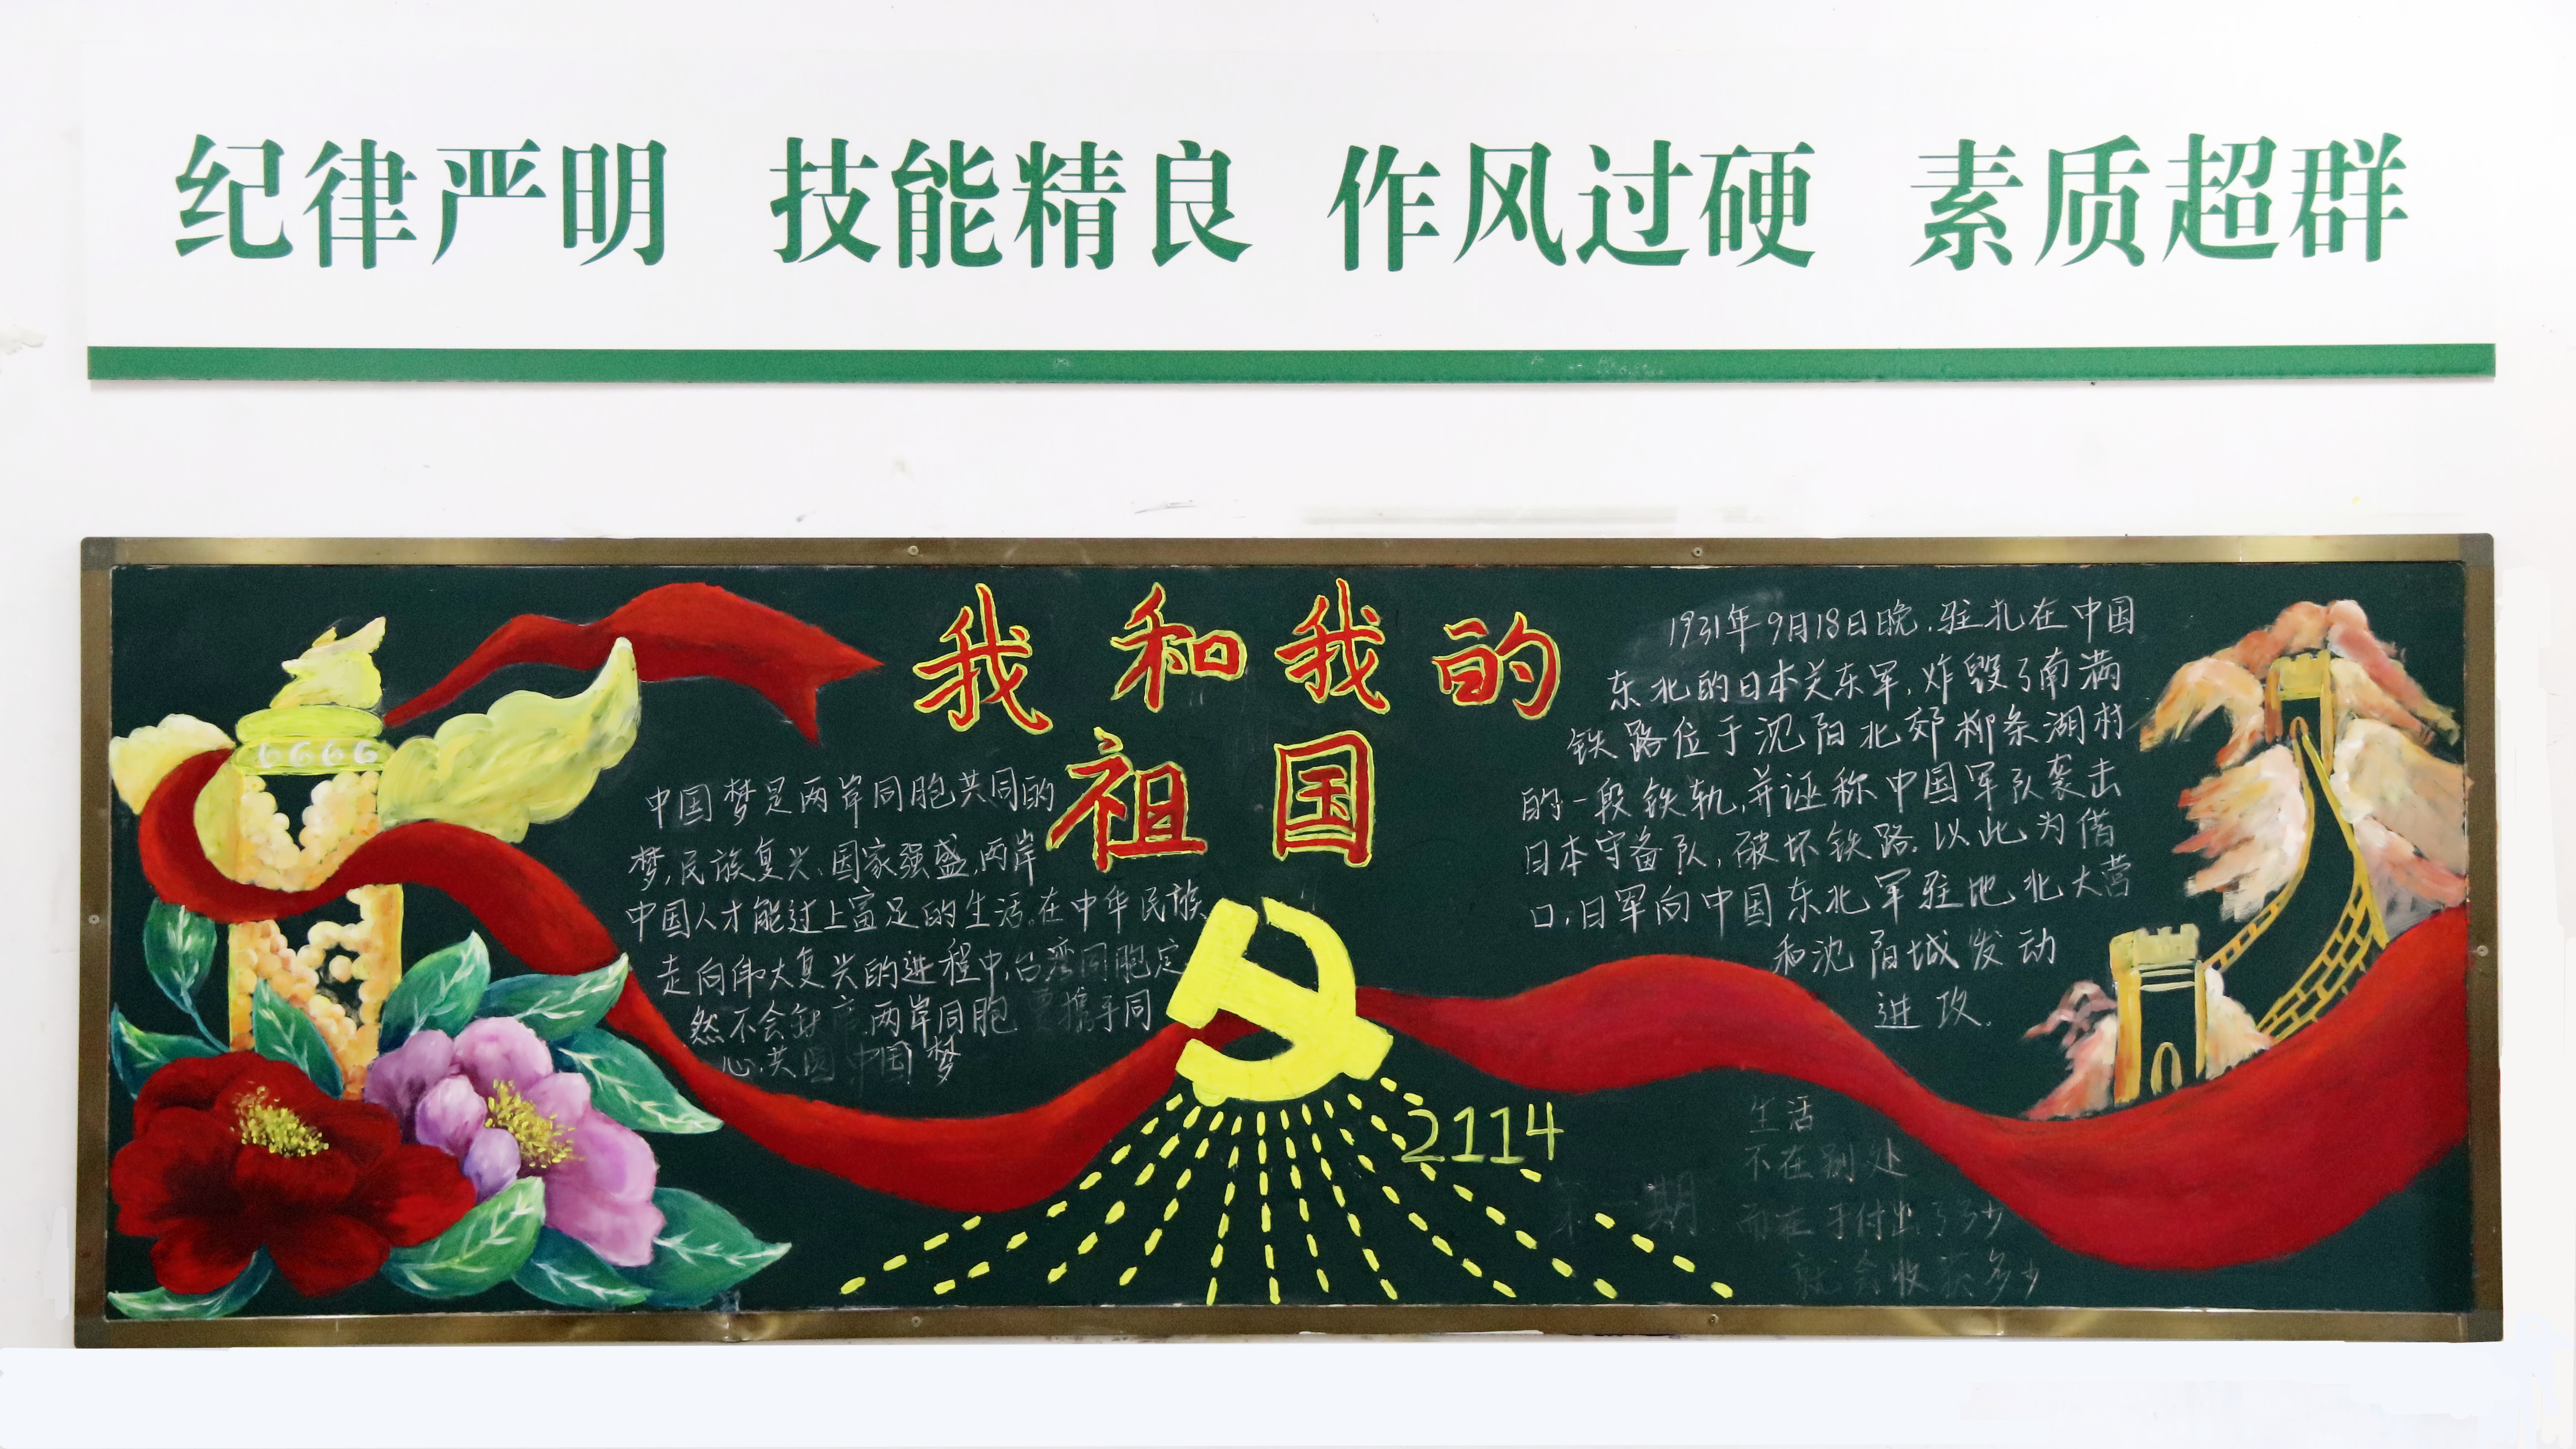 纪律严明 技能精良 作风过硬 素质超群
我和我的
祖国
中国梦是两岸同胞共同的
梦,民族复兴、国家强盛,两岸
中国人才能过上富足的生活。在中华民族
走向伟大复兴的进程中,台湾同胞定
然不会缺席,两岸同胞要携手同
心,共圆中国梦
1931年9月18日晚,驻扎在中国
东北的日本关东军,炸毁了南满
铁路位于沈阳北郊柳条湖村
的一段铁轨,并诬称中国军队袭击
日本守备队,破坏铁路.以此为借
口,日军向中国东北军驻地北大营
和沈阳城发动
进攻.
6666
2114
第一期
生活
不在别处
而在于付出了多少
就会收获多少